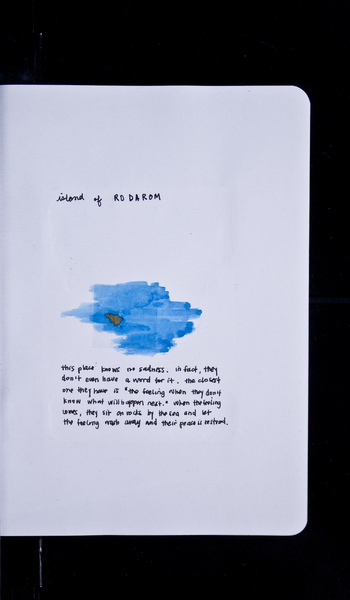 island of RODAROM
this place knows no sadness. in fact, they
don't even have a word for it. the closest
one they have is "the feeling when they don't
know what will happen next." when the feeling
comes, they sit on rocks by the sea and let
the feeling wash away and their peace is restored.